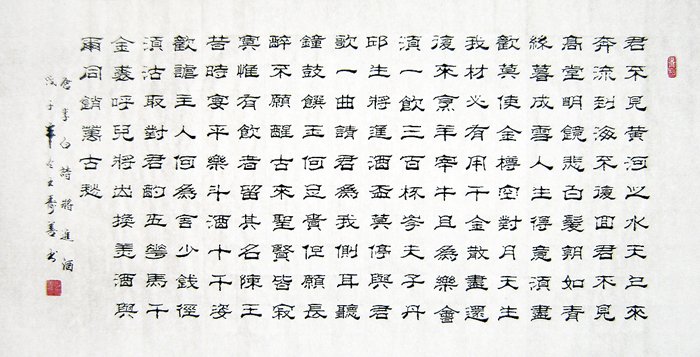 君不見黃河之水天上來
奔流到海不復回君不見
高堂明鏡悲白髮朝如青
絲暮成雪人生得意須盡
歡莫使金樽空對月天生
我材必有用千金散盡還
復來烹羊宰牛且爲樂會
須一飲三百杯岑夫子丹
邱生將進酒盃莫停與君
歌一曲請君爲我側耳聽
鐘鼓饌玉何足貴但願長
醉不願醒古來聖賢皆寂
寞惟有飲者留其名陳王
昔時宴平樂斗酒十千姿
歡謔主人何爲言少錢徑
須沽取對君酌五華馬千
金裘呼兒將出換美酒與
爾同銷萬古愁
唐李白詩將進酒
戊子年